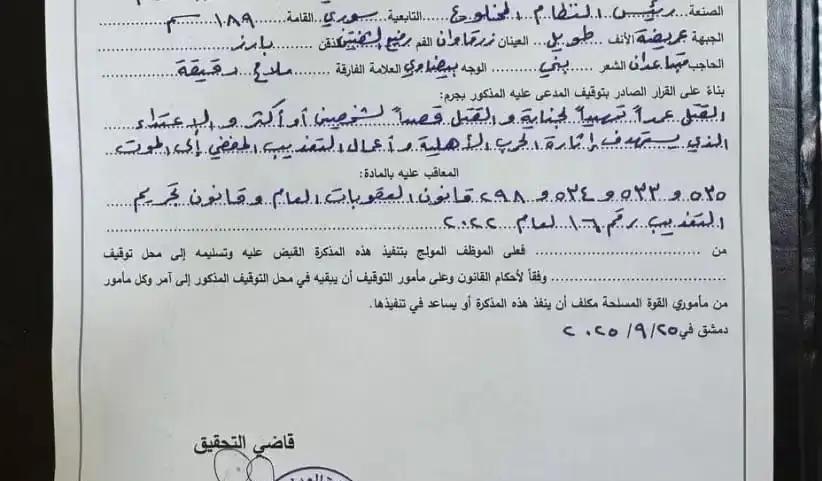 الصنعة...رئيس النظام المخلوع...التابعية...سوري...القامة...١٨٩ سم
الجبهة عريضة الأنف...طويل...العينان زرقاوان الفم رفيع الشفتين الذقن...بارز
الحاجب متباعدان الشعر...بني...الوجه بيضاوي العلامة الفارقة...ملامح دقيقة
بناءً على القرار الصادر بتوقيف المدعى عليه المذكور بجرم:
القتل عمداً تمهيداً لجناية و القتل قصداً لشخصين أو أكثر و الاعتداء
الذي يستهدف إثارة الحرب الأهلية و أعمال التعذيب المفضي إلى الموت
المعاقب عليه بالمادة:
٥٣٥ و ٥٣٣ و ٥٣٤ و ٢٩٨ قانون العقوبات العام و قانون تجريم
التعذيب رقم ١٦ لعام ٢٠٢٢
من ................ فعلى الموظف المولج بتنفيذ هذه المذكرة القبض عليه وتسليمه إلى محل توقيف
................ وفقاً لأحكام القانون وعلى مأمور التوقيف أن يبقيه في محل التوقيف المذكور إلى آمر وكل مأمور
من مأموري القوة المسلحة مكلف أن ينفذ هذه المذكرة أو يساعد في تنفيذها.
دمشق في ٢٠٢٥/٩/٢٥
قاضي التحقيق